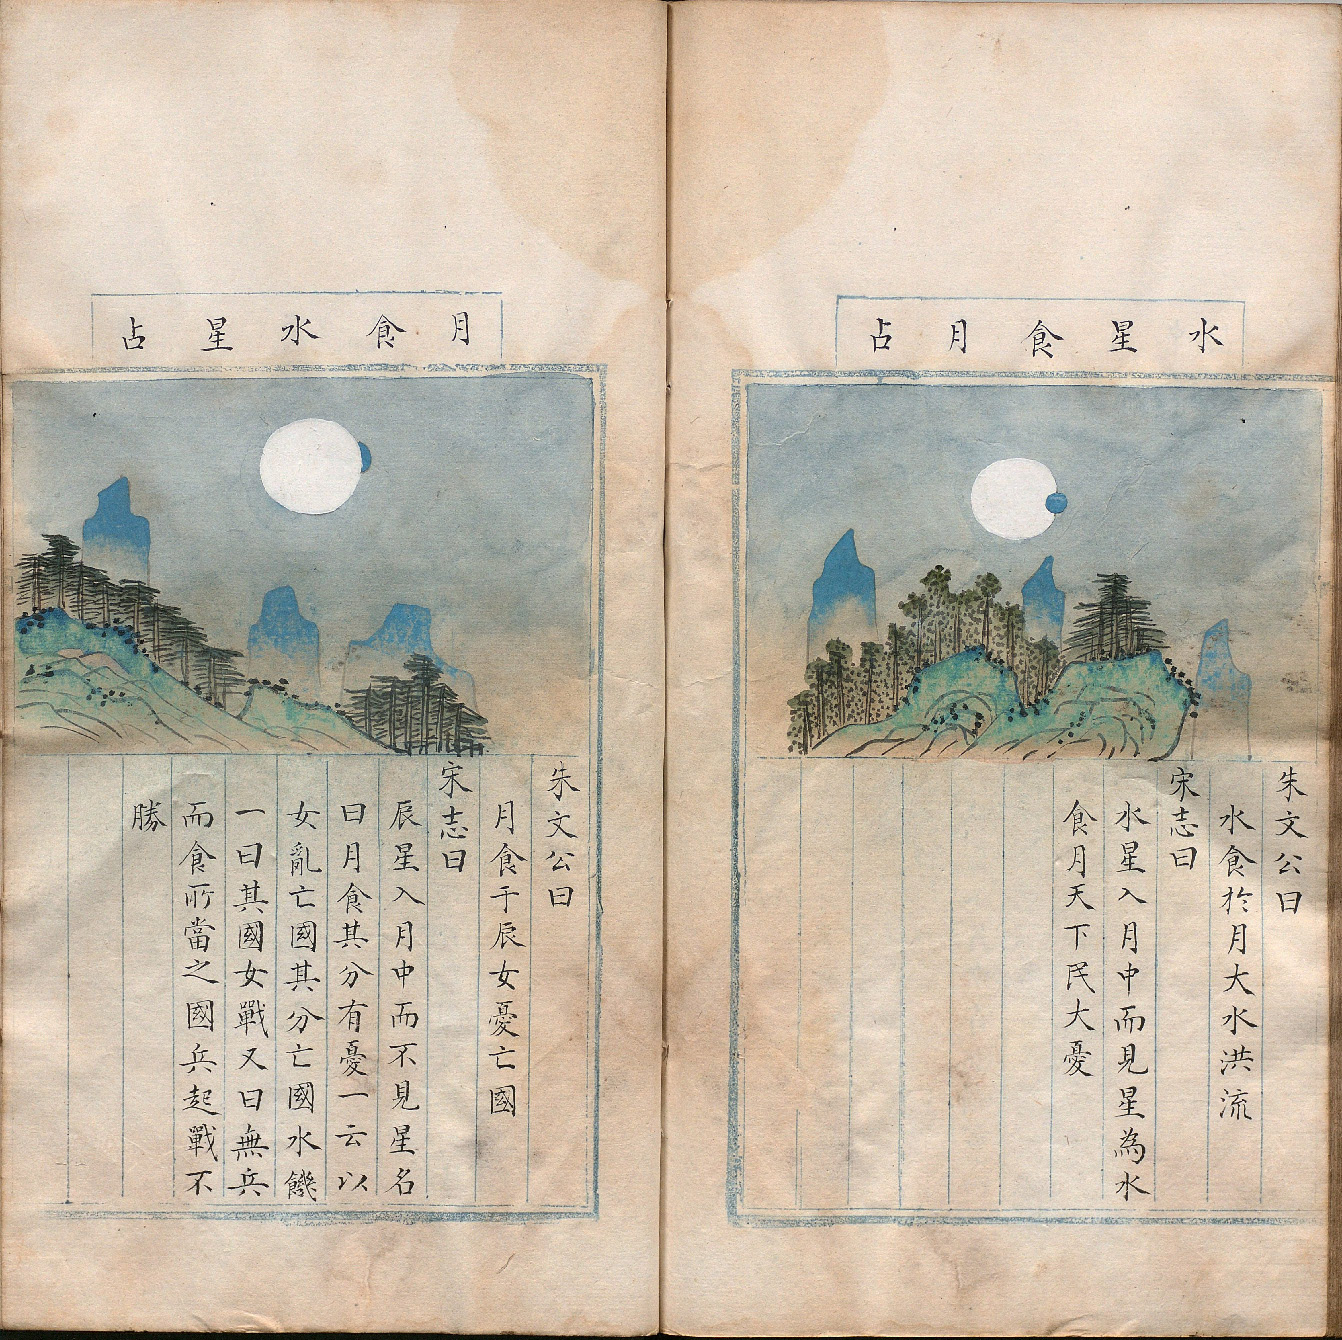 水星食月占
朱文公曰
水食於月大水洪流
宋志曰
水星入月中而見星為水
食月天下民大憂
月食水星占
朱文公曰
月食于辰女憂亡國
宋志曰
辰星入月中而不見星名
曰月食其分有憂一云以
女亂亡國其分亡國水饑
一曰其國女戰又曰無兵
而食所當之國兵起戰不
勝